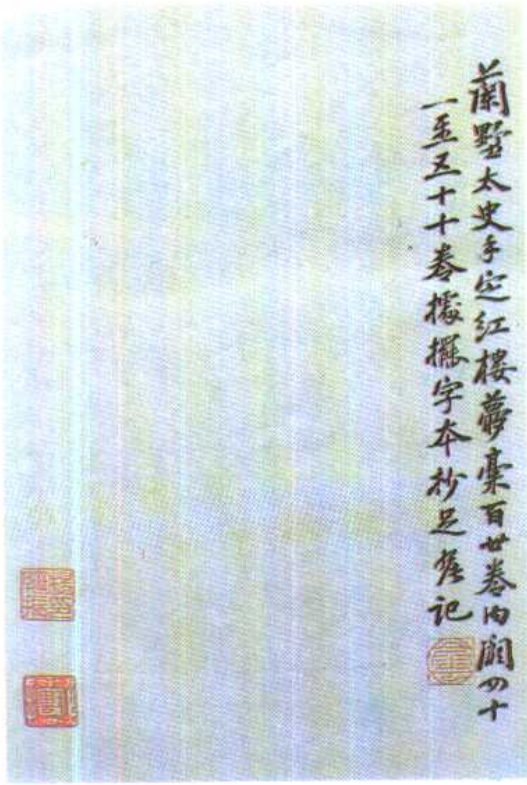 蘭墅太史手定紅樓夢稾百廿卷內闕四十
一至五十十卷據擺字本抄足繼記